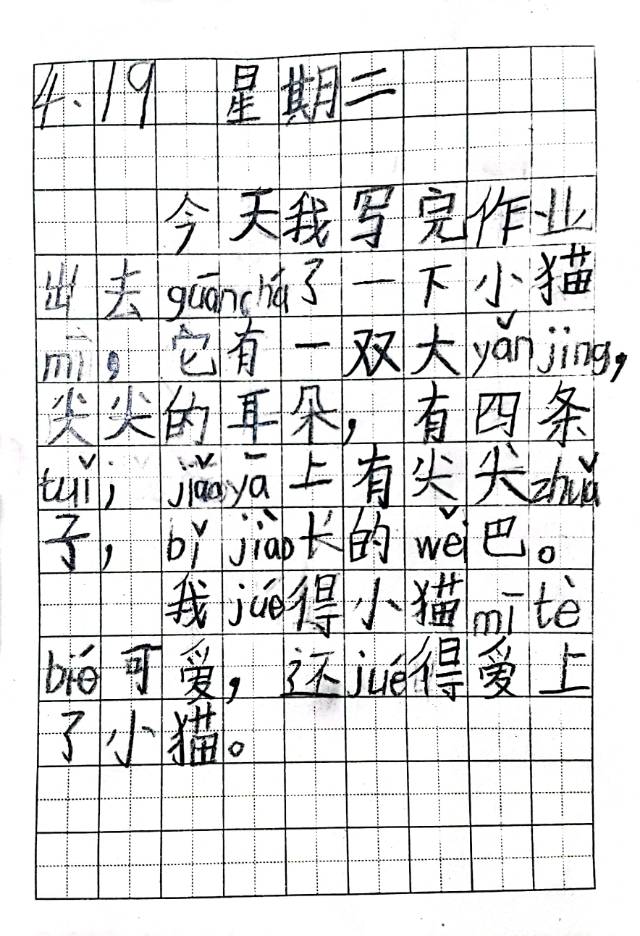 4.19 星期二
今天我写完作业
出去guānchá了一下小猫
mī，它有一双大yǎnjing，
尖尖的耳朵，有四条
tuǐ，jiǎoyā上有尖尖zhuǎ
子，bǐjiào长的wěi巴。
我jué得小猫mī tè
bié可爱，还jué得爱上
了小猫。